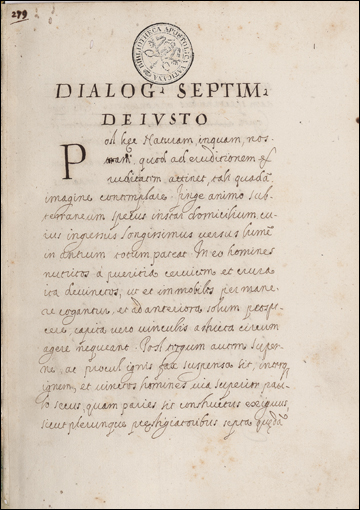 279
BIBLIOTHECA APOSTOLICA VATICANA
DIALOG· SEPTIM·
DE IVSTO
Post hęc Naturam, inquam, nos-
tram, quod ad eruditionem &
ruditatem attinet, tali quadā
imagine contemplare. Finge animo sub-
terraneum specus instar domicilium cu-
ius ingressus longissimus versus lumē
in antrum totum pateat. In eo homines
nutritos a pueritia cervicem et crura
ita devinctos, ut et immobiles perma-
re cogantur, et ad anteriora solum prosp-
cere, capita vero vinculis adhicta circum
agere nequeant. Post tergum autem super-
ne, ac procul ignis fax suspensa sit, inter
ignem, et vinctos homines via superior pau-
lo secus, quam paries sit constructus exiguus,
sicut plerunque prestigiatoribus septa quędā